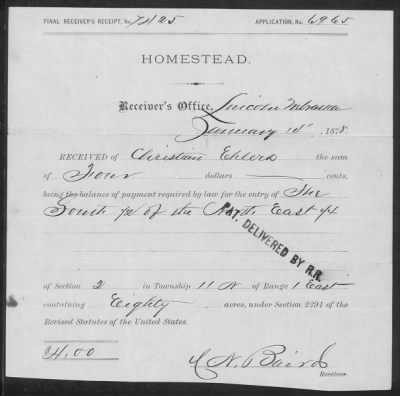 FINAL RECEIVER'S RECEIPT, No. 7425 APPLICATION, No. 6965
HOMESTEAD.
Receiver's Office, Lincoln Nebraska
January 14th, 1878.
RECEIVED of Christian Ehlers the sum
of Four dollars cents,
being the balance of payment required by law for the entry of The
South ½ of the North East ¼
PAT. DELIVERED BY R.R.
of Section 2 in Township 11 N of Range 1 East
containing Eighty acres, under Section 2291 of the
Revised Statutes of the United States.
$4.00
N. Baird
Receiver.